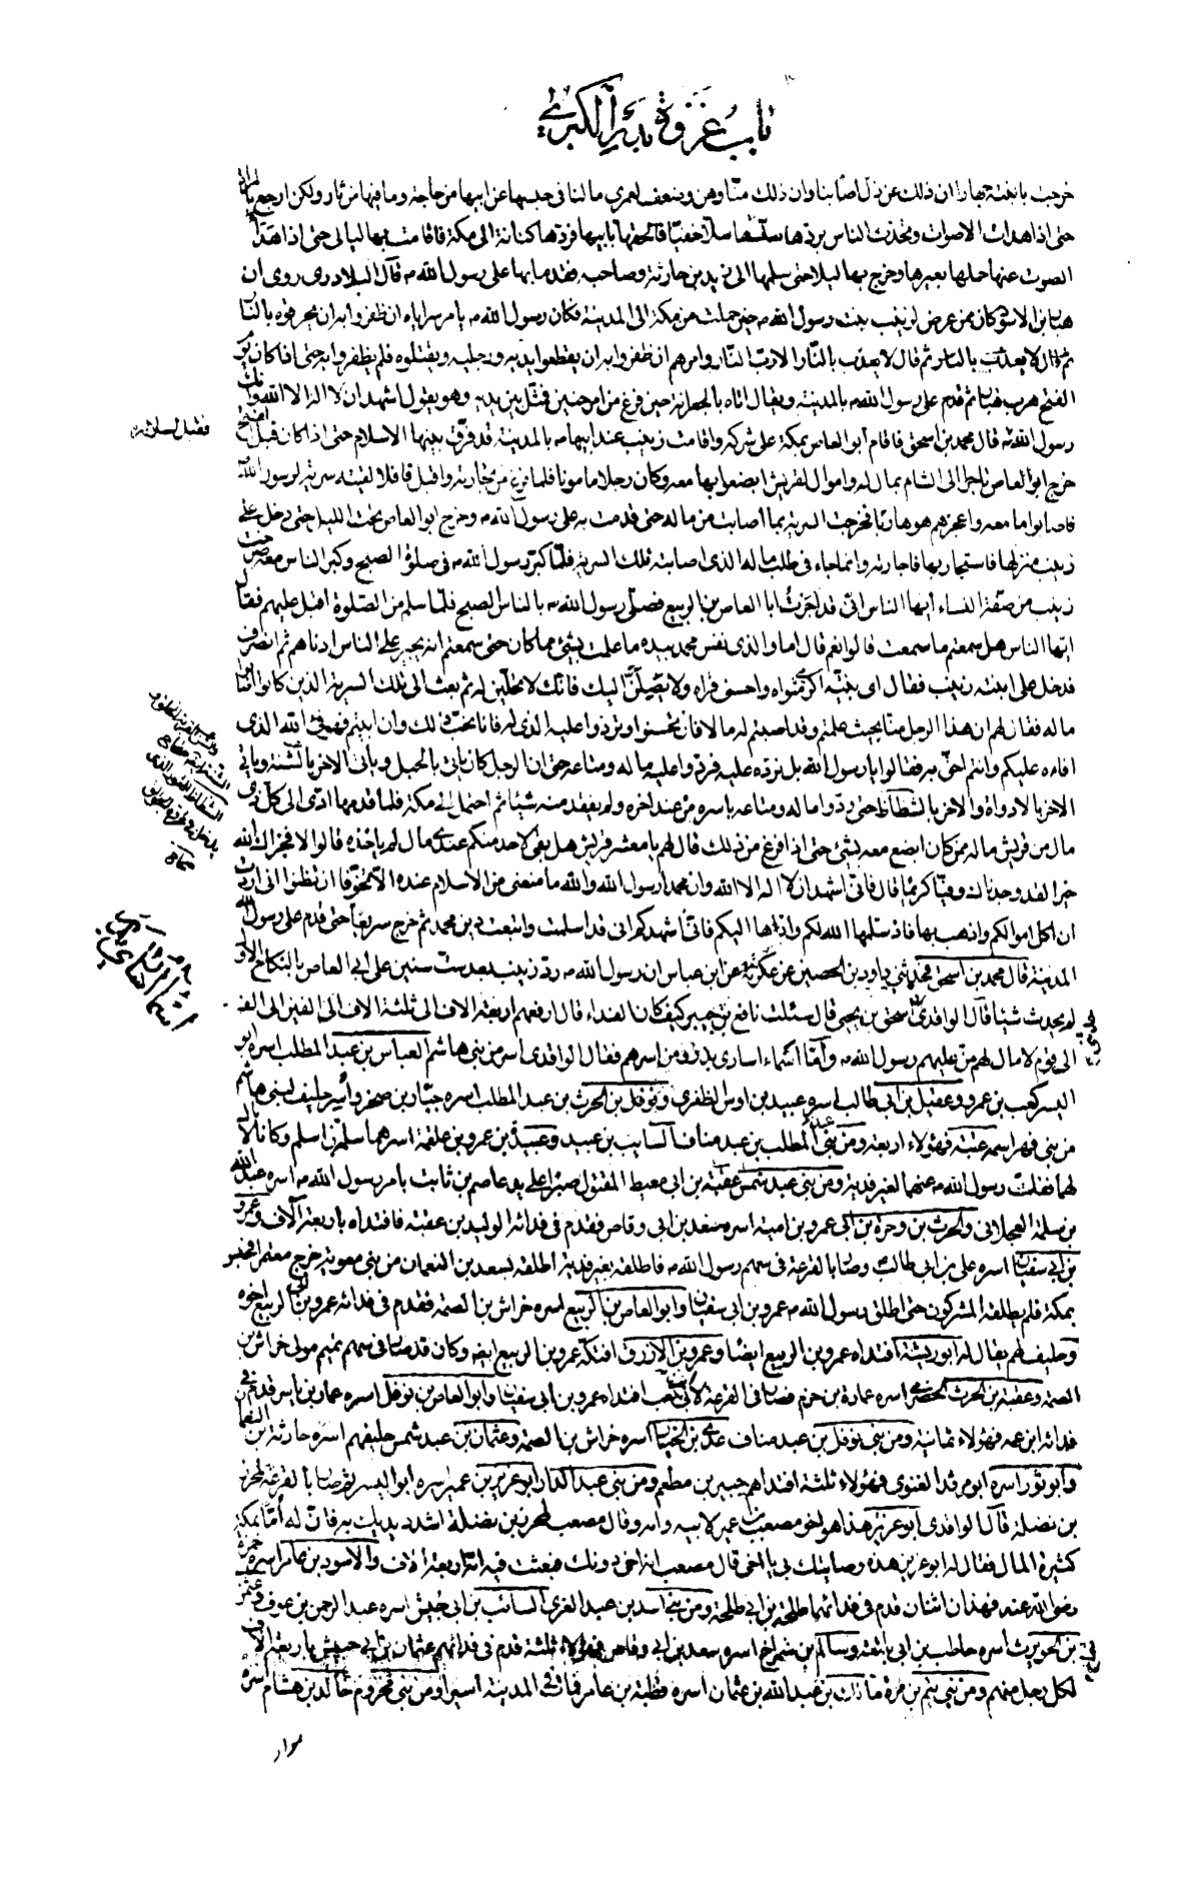 باب غزوة بدر الكبرى
خرجت بابنته جهارا ان ذلك عن ذل اصابنا وان ذلك منا وهن وضعف لعمري مالنا في حبسها عن ابيها من حاجة وما فيها من ثار ولكن ارجع بالمراة
حتى اذا هدات الاصوات وتحدث الناس بردها سلها سلا خفيا فالحقها بابيها فردها كنانة الى مكة فاقامت بها ليالي حتى اذا هدا
الصوت عنها حملها بعيرها وخرج بها ليلا حتى سلمها الى زيد بن حارثة وصاحبه فقدما بها على رسول الله م قال البلاذري روي ان
هبار بن الاسود كان ممن عرض لزينب بنت رسول الله م حين حملت من مكة الى المدينة فكان رسول الله م يامر سراياه ان ظفروا به ان يحرقوه بالنار
ثم قال لا يعذب بالنار ثم قال لا يعذب بالنار الا رب النار وامرهم ان ظفروا به ان يقطعوا يديه ورجليه ويقتلوه فلم يظفروا به حتى اذا كان يوم
الفتح هرب هبار ثم قدم على رسول الله م بالمدينة ويقال اتاه بالجعرانة حين فرغ من امر حنين فمثل بين يديه وهو يقول اشهد ان لا اله الا الله وانك
رسول الله فقبل اسلامه
قال محمد بن اسحق فاقام ابو العاص بمكة على شركه واقامت زينب عند ابيها م بالمدينة قد فرق بينهما الاسلام حتى اذا كان قبل الفتح
خرج ابو العاص تاجرا الى الشام بمال له واموال لقريش ابضعوا بها معه وكان رجلا مامونا فلما فرغ من تجارته واقبل قافلا لقيته سرية لرسول الله
فاصابوا ما معه واعجزهم هو هاربا فخرجت السرية بما اصابت من ماله حتى قدمت به على رسول الله م وخرج ابو العاص تحت الليل حتى دخل على
زينب منزلها فاستجار بها فاجارته وانما جاء في طلب ماله الذي اصابته تلك السرية فلما كبر رسول الله م في صلوة الصبح وكبر الناس معه صرخت
زينب من صفة النساء ايها الناس اني قد اجرت ابا العاص بن الربيع فصلى رسول الله م بالناس الصبح فلما سلم من الصلوة اقبل عليهم فقال
ايها الناس هل سمعتم ما سمعت قالوا نعم قال اما والذي نفس محمد بيده ما علمت بشيء مما كان حتى سمعتم انه يجير على الناس ادناهم ثم انصرف
فدخل على ابنته زينب فقال اي بنية اكرمي مثواه واحسني قراه ولا يصلن اليك فانك لا تحلين له ثم بعث الى تلك السرية الذين كانوا اصابوا
ماله فقال لهم ان هذا الرجل منا بحيث علمتم وقد اصبتم له مالا فان تحسنوا وتردوا عليه الذي له فانا نحب ذلك وان ابيتم فهو فيء الله الذي
افاءه عليكم وانتم احق به فقالوا يا رسول الله بل نرده عليه فردوا عليه ماله ومتاعه حتى ان الرجل كان ياتي بالحبل وياتي الاخر بالشنة وياتي
الاخر بالاداوة والاخر بالشظاظ حتى ردوا ماله ومتاعه باسره من عند اخره ولم يفقد منه شيئا ثم احتمل الى مكة فلما قدمها ادى الى كل ذي
مال من قريش ماله ممن كان ابضع معه بشيء حتى اذا فرغ من ذلك قال لهم يا معشر قريش هل بقي لاحد منكم عندي مال لم ياخذه قالوا لا فجزاك الله
خيرا لقد وجدناك وفيا كريما قال فاني اشهد ان لا اله الا الله وان محمدا رسول الله والله ما منعني من الاسلام عنده الا تخوفا ان تظنوا اني اردت
ان اكل اموالكم واذهب بها فاذ سلمها الله لكم واداها اليكم فاني اشهدكم اني قد اسلمت واتبعت دين محمد ثم خرج سريعا حتى قدم على رسول الله
المدينة قال محمد بن اسحق فحدثني داود بن الحصين عن عكرمة عن ابن عباس ان رسول الله م رد زينب بعد ست سنين على ابي العاص بالنكاح الاول
لم يحدث شيئا قال الواقدي اسحق بن يحيى قال سئلت نافع بن جبير كيف كان الفداء قال ارفعهم اربعة الاف الى ثلثة الاف الى الفين الى الف
الى قوم لا مال لهم من عليهم رسول الله م واما اسماء اسارى بدر ومن اسرهم فقال الواقدي اسر من بني هاشم العباس بن عبد المطلب اسره ابو
اليسر كعب بن عمرو وعقيل بن ابي طالب اسره عبيد بن اوس الظفري ونوفل بن الحرث بن عبد المطلب اسره جبار بن صخر واسر حليف لبني هاشم
من بني فهر اسمه عتبة فهؤلاء اربعة ومن بني المطلب بن عبد مناف السايب بن عبيد وعبيد بن عمرو بن علقمة اسرهما سلمة بن اسلم وكانا لا مال
لهما ففك رسول الله م عنهما بغير فدية ومن بني عبد شمس عقبة بن ابي معيط المقتول صبرا على يد عاصم بن ثابت بامر رسول الله م اسره عبد الله
بن سلمة العجلاني والحرث بن وحرة بن ابي عمرو بن امية اسره سعد بن ابي وقاص فقدم في فدائه الوليد بن عقبة فافتداه باربعة آلاف وعمرو
بن ابي سفيان اسره علي بن ابي طالب وصار بالقرعة في سهم رسول الله م فاطلقه بغير فدية اطلقه بسعد بن النعمان من بني معوية خرج معتمرا فحبس
بمكة فلم يطلقه المشركون حتى اطلق رسول الله م عمرو بن ابي سفيان وابو العاص بن الربيع اسره خراش بن الصمة فقدم في فدائه عمرو بن الربيع اخوه
وحليف لهم يقال له ابو ريشة افتداه عمرو بن الربيع ايضا وعمرو بن الازرق افتكه عمرو بن الربيع ايضا وكان قد صار في سهم تميم مولى خراش بن
الصمة وعقبة بن الحرث الحضرمي اسره عمارة بن حزم فصار في القرعة لابي بن كعب افتداه عمرو بن ابي سفيان وابو العاص بن نوفل اسره عمار بن ياسر قدم في
فدائه ابن عمه فهؤلاء ثمانية ومن بني نوفل بن عبد مناف عدي بن الخيار اسره خراش بن الصمة وعثمان بن عبد شمس حليفهم اسره حارثة بن النعمان
وابو ثور اسره ابو مرثد الغنوي فهؤلاء ثلثة افتداهم جبير بن مطعم ومن بني عبد الدار ابو عزيز بن عمير اسره ابو اليسر ثم صار بالقرعة لمحرز
بن نضلة قال الواقدي ابو عزيز هذا هو اخو مصعب بن عمير لابيه وامه وقال مصعب لمحرز بن نضلة اشدد يديك به فان له اما بمكة
كثيرة المال فقال له ابو عزيز هذه وصايتك بي يا اخي قال مصعب انه اخي دونك فبعثت فيه امه اربعة الاف والاسود بن عامر اسره حمزة
رضي الله عنه فهذان اثنان قدم في فدائهما طلحة بن ابي طلحة ومن بني اسد بن عبد العزى السائب بن ابي حبيش اسره عبد الرحمن بن عوف وعثمن
بن الحويرث اسره حاطب بن ابي بلتعة وسالم بن شماخ اسره سعد بن ابي وقاص فهؤلاء ثلثة قدم في فدائهم عثمان بن ابي حبيش باربعة الاف
لكل رجل منهم ومن بني تيم بن مرة مالك بن عبد الله بن عثمان اسره قطبة بن عامر فمات في المدينة اسيرا ومن بني مخزوم خالد بن هشام اسره
سواد